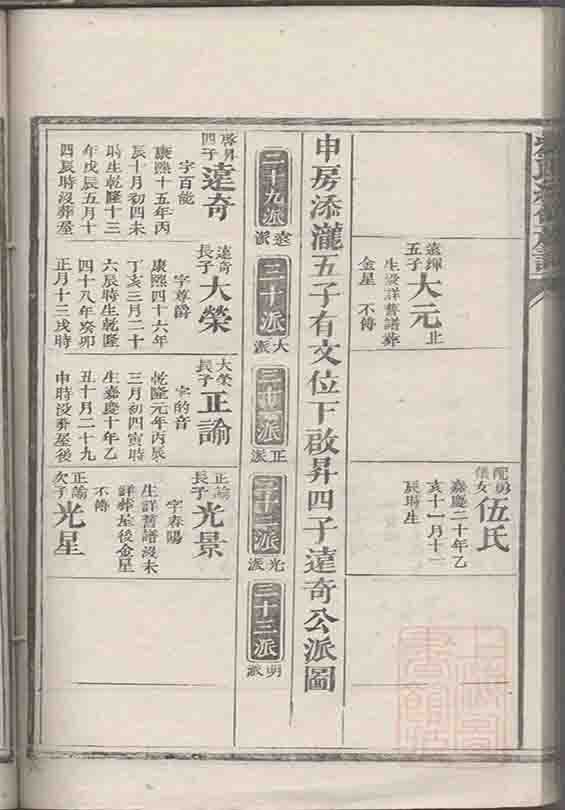 遠輝
五子
大元
北
生没詳舊譜葬
金星 不傳
配明
儀女
伍氏
嘉慶二十年乙
亥十一月十一
辰時生
申房添瀧五子有文位下啟昇四子遠奇公派圖
二十九派
遠派
三十派
大派
三十一派
正派
三十二派
光派
三十三派
明派
啓昇
四子
遠奇
字百能
康熙十五年丙
辰十月初四未
時生乾隆十三
年戊辰五月十
四辰時没葬屋
遠奇
長子
大榮
字尊爵
康熙四十六年
丁亥三月二十
六辰時生乾隆
四十八年癸卯
正月十三戌時
大榮
長子
正諭
字的音
乾隆元年丙辰
三月初四寅時
生嘉慶十年乙
丑十月二十九
申時没葬屋後
正諭
長子
光景
字春陽
生詳舊譜没未
詳葬屋後金星
不傳
正諭
次子
光星